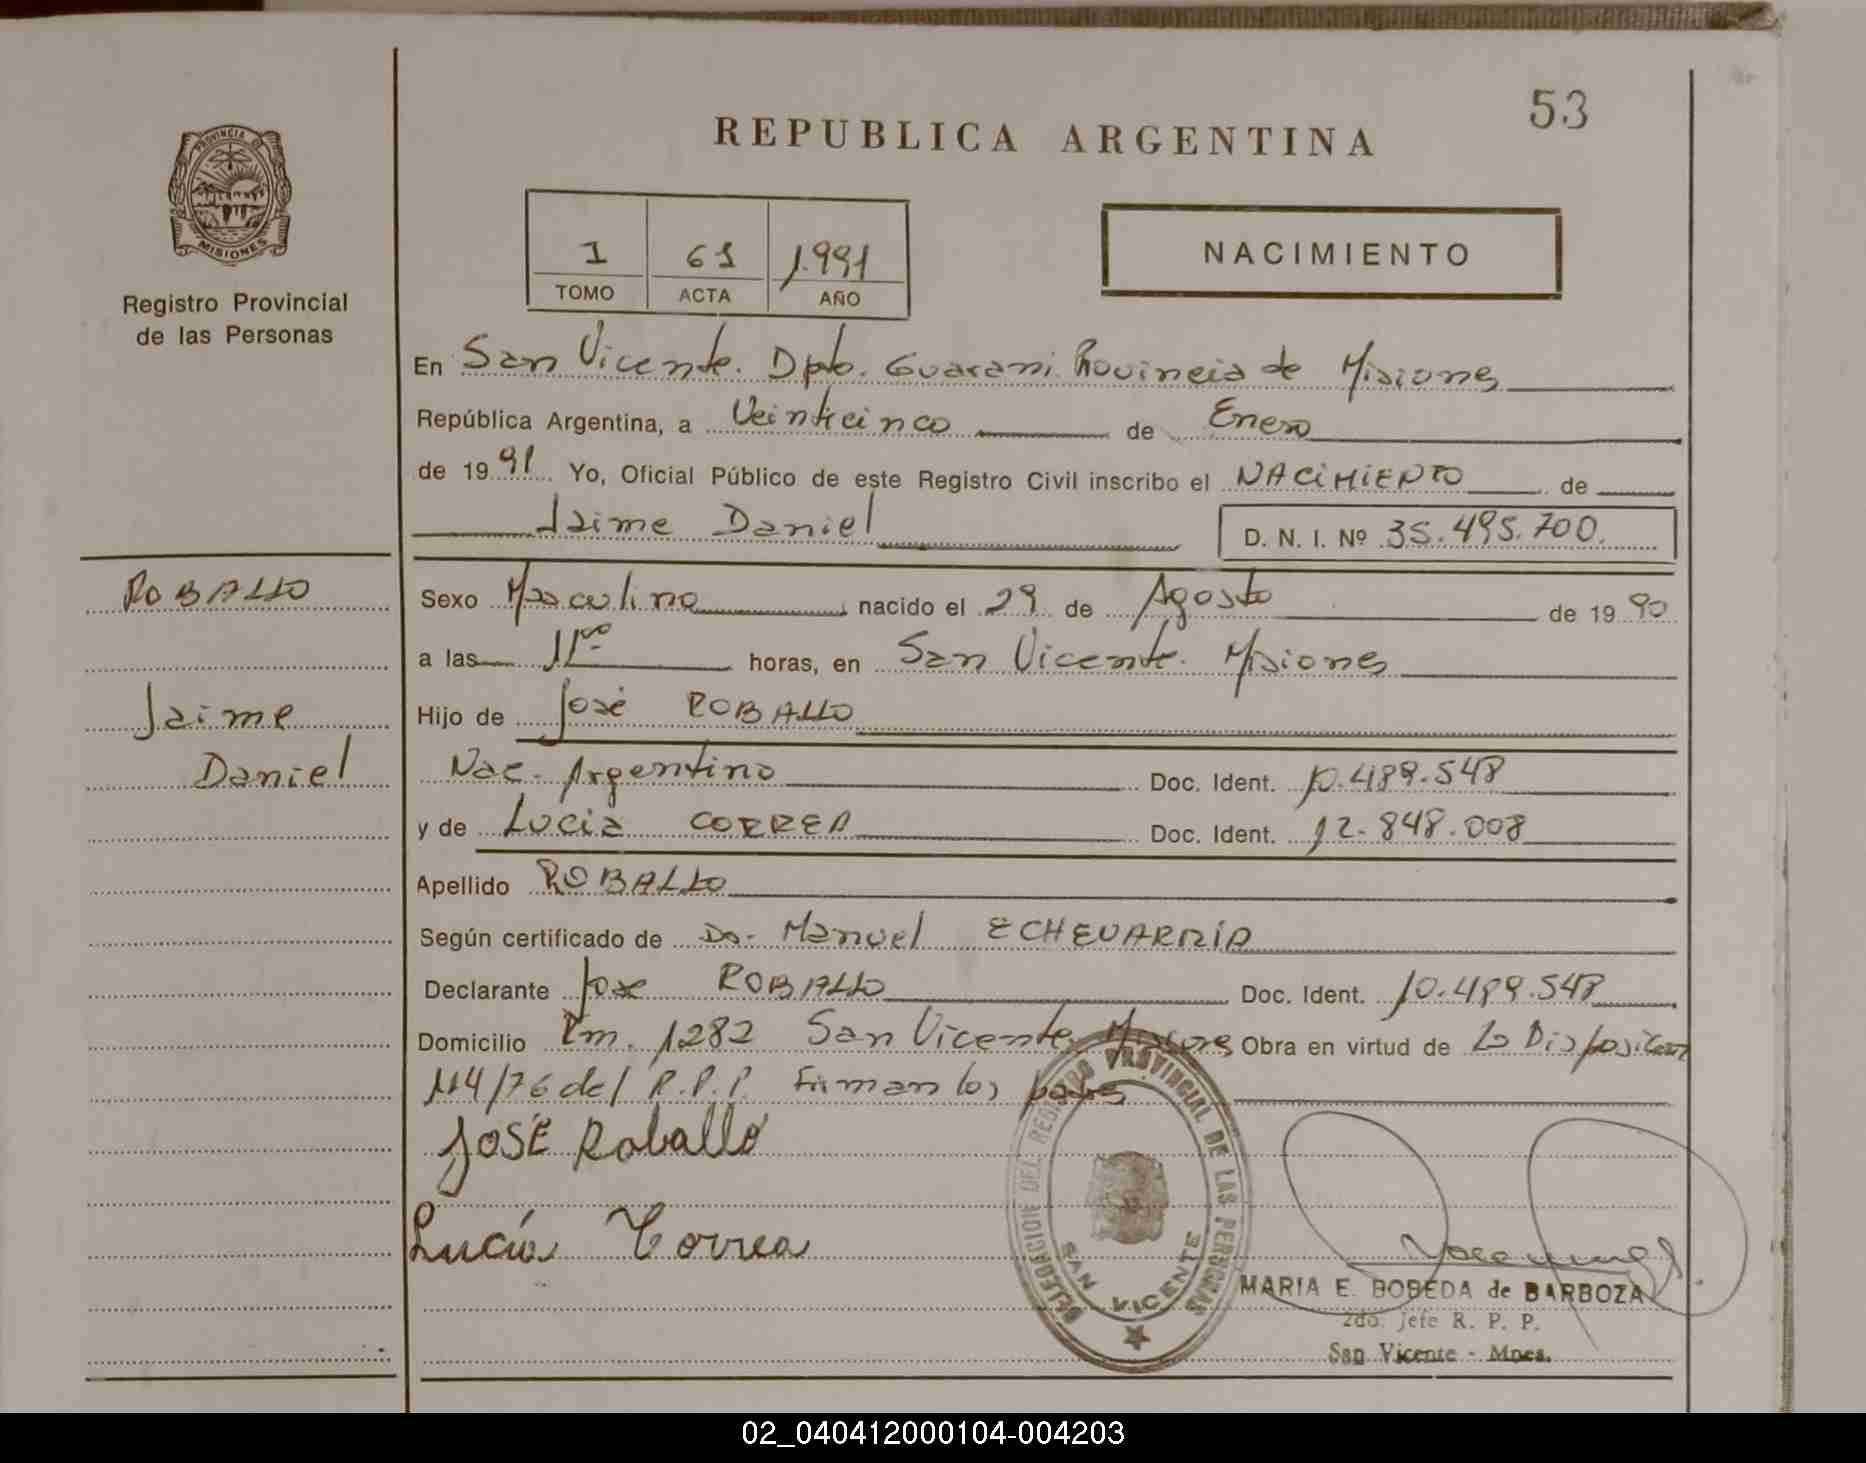 53
REPUBLICA ARGENTINA
PROVINCIA DE
MISIONES
Registro Provincial
de las Personas
1 61 1.991
TOMO ACTA AÑO
NACIMIENTO
En San Vicente. Dpto. Guarani. Provincia de Misiones
República Argentina, a Veinticinco de Enero
de 1991 Yo, Oficial Público de este Registro Civil inscribo el NACIMIENTO de
Jaime Daniel D. N. I. Nº 35.495.700.
ROBALLO
Sexo Masculino nacido el 29 de Agosto de 1990
a las 11⁰⁰ horas, en San Vicente. Misiones
Jaime
Hijo de José ROBALLO
Daniel
Nac. Argentino Doc. Ident. 10.489.548
y de Lucia CORREA Doc. Ident. 12.848.008
Apellido ROBALLO
Según certificado de Dr. Manuel ECHEVARRÍA
Declarante Jose ROBALLO Doc. Ident. 10.489.548
Domicilio Km. 1282 San Vicente, Misiones Obra en virtud de La Disposicion
114/76 del R.P.P. Firman los
JOSÉ Roballo
Lucía Correa
DELEGACION DEL REGISTRO PROVINCIAL DE LAS PERSONAS
SAN VICENTE
MARIA E. BOBEDA de BARBOZA
2do. Jefe R. P. P.
San Vicente - Mnes.
02_040412000104-004203